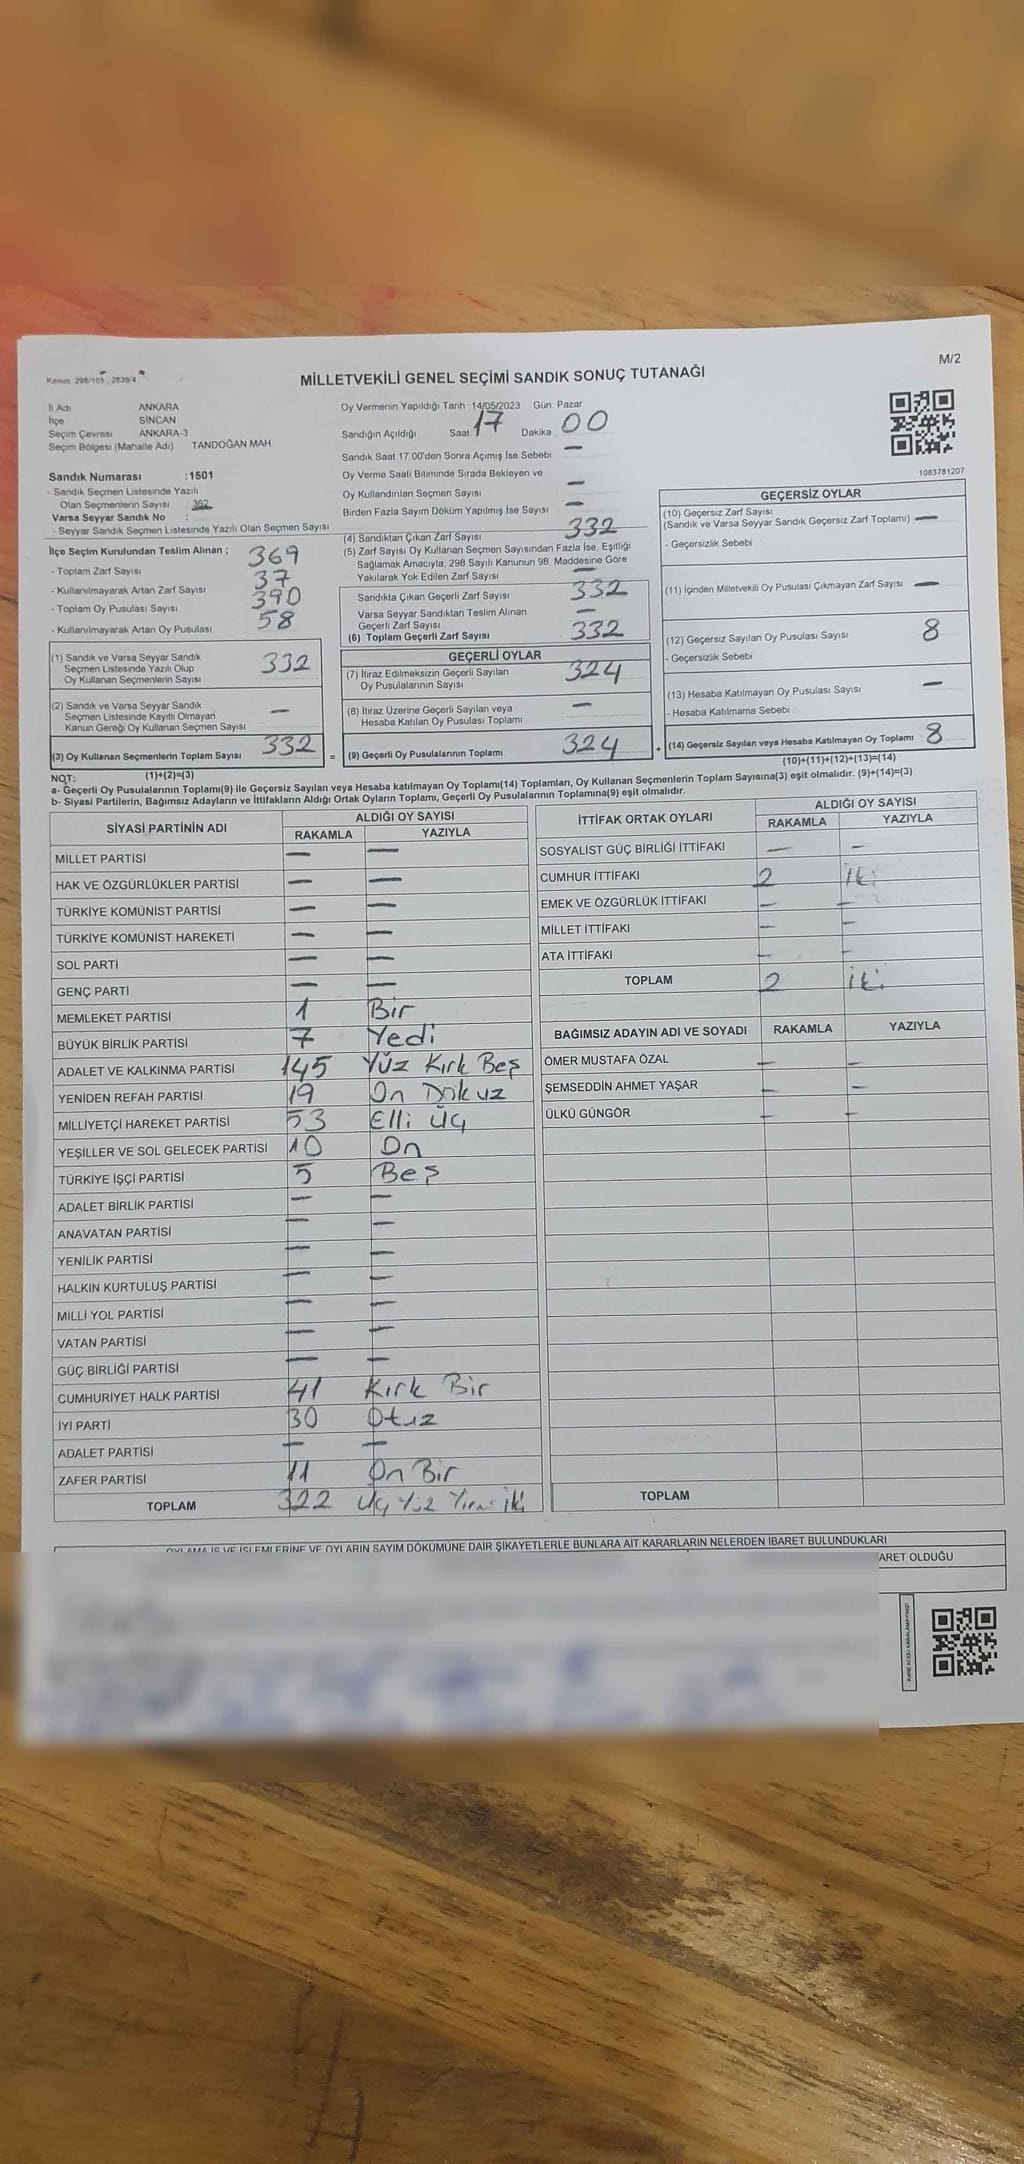 M/2
Kanun 298/105, 2839/4
MİLLETVEKİLİ GENEL SEÇİMİ SANDIK SONUÇ TUTANAĞI
İl Adı ANKARA
İlçe SİNCAN
Seçim Çevresi ANKARA-3
Seçim Bölgesi (Mahalle Adı) TANDOĞAN MAH.
Sandık Numarası :1501
- Sandık Seçmen Listesinde Yazılı
Olan Seçmenlerin Sayısı : 362
Varsa Seyyar Sandık No :
- Seyyar Sandık Seçmen Listesinde Yazılı Olan Seçmen Sayısı
Oy Vermenin Yapıldığı Tarih 14/05/2023 Gün: Pazar
Sandığın Açıldığı Saat 17 Dakika 00
Sandık Saat 17:00'den Sonra Açımış İse Sebebi —
Oy Verme Saati Bitiminde Sırada Bekleyen ve
Oy Kullandırılan Seçmen Sayısı —
Birden Fazla Sayım Döküm Yapılmış İse Sayısı —
1083781207
İlçe Seçim Kurulundan Teslim Alınan ;
- Toplam Zarf Sayısı 369
- Kullanılmayarak Artan Zarf Sayısı 37
- Toplam Oy Pusulası Sayısı 390
- Kullanılmayarak Artan Oy Pusulası 58
(1) Sandık ve Varsa Seyyar Sandık
Seçmen Listesinde Yazılı Olup
Oy Kullanan Seçmenlerin Sayısı 332
(2) Sandık ve Varsa Seyyar Sandık
Seçmen Listesinde Kayıtlı Olmayan
Kanun Gereği Oy Kullanan Seçmen Sayısı —
(3) Oy Kullanan Seçmenlerin Toplam Sayısı 332
(1)+(2)=(3)
(4) Sandıktan Çıkan Zarf Sayısı 332
(5) Zarf Sayısı Oy Kullanan Seçmen Sayısından Fazla İse, Eşitliği
Sağlamak Amacıyla, 298 Sayılı Kanunun 98. Maddesine Göre
Yakılarak Yok Edilen Zarf Sayısı —
Sandıkta Çıkan Geçerli Zarf Sayısı 332
Varsa Seyyar Sandıktan Teslim Alınan
Geçerli Zarf Sayısı —
(6) Toplam Geçerli Zarf Sayısı 332
GEÇERLİ OYLAR
(7) İtiraz Edilmeksizin Geçerli Sayılan
Oy Pusulalarının Sayısı 324
(8) İtiraz Üzerine Geçerli Sayılan veya
Hesaba Katılan Oy Pusulası Toplamı —
= (9) Geçerli Oy Pusulalarının Toplamı 324 +
GEÇERSİZ OYLAR
(10) Geçersiz Zarf Sayısı
(Sandık ve Varsa Seyyar Sandık Geçersiz Zarf Toplamı) —
- Geçersizlik Sebebi
(11) İçinden Milletvekili Oy Pusulası Çıkmayan Zarf Sayısı —
(12) Geçersiz Sayılan Oy Pusulası Sayısı 8
- Geçersizlik Sebebi
(13) Hesaba Katılmayan Oy Pusulası Sayısı —
- Hesaba Katılmama Sebebi
(14) Geçersiz Sayılan veya Hesaba Katılmayan Oy Toplamı 8
(10)+(11)+(12)+(13)=(14)
NOT:
a- Geçerli Oy Pusulalarının Toplamı(9) ile Geçersiz Sayılan veya Hesaba katılmayan Oy Toplamı(14) Toplamları, Oy Kullanan Seçmenlerin Toplam Sayısına(3) eşit olmalıdır. (9)+(14)=(3)
b- Siyasi Partilerin, Bağımsız Adayların ve İttifakların Aldığı Ortak Oyların Toplamı, Geçerli Oy Pusulalarının Toplamına(9) eşit olmalıdır.
SİYASİ PARTİNİN ADI ALDIĞI OY SAYISI
RAKAMLA YAZIYLA
MİLLET PARTİSİ — —
HAK VE ÖZGÜRLÜKLER PARTİSİ — —
TÜRKİYE KOMÜNİST PARTİSİ — —
TÜRKİYE KOMÜNİST HAREKETİ — —
SOL PARTİ — —
GENÇ PARTİ — —
MEMLEKET PARTİSİ 1 Bir
BÜYÜK BİRLİK PARTİSİ 7 Yedi
ADALET VE KALKINMA PARTİSİ 145 Yüz Kırk Beş
YENİDEN REFAH PARTİSİ 19 On Dokuz
MİLLİYETÇİ HAREKET PARTİSİ 53 Elli Üç
YEŞİLLER VE SOL GELECEK PARTİSİ 10 On
TÜRKİYE İŞÇİ PARTİSİ 5 Beş
ADALET BİRLİK PARTİSİ — —
ANAVATAN PARTİSİ — —
YENİLİK PARTİSİ — —
HALKIN KURTULUŞ PARTİSİ — —
MİLLİ YOL PARTİSİ — —
VATAN PARTİSİ — —
GÜÇ BİRLİĞİ PARTİSİ — —
CUMHURİYET HALK PARTİSİ 41 Kırk Bir
İYİ PARTİ 30 Otuz
ADALET PARTİSİ — —
ZAFER PARTİSİ 11 On Bir
TOPLAM 322 Üç Yüz Yirmi İki
İTTİFAK ORTAK OYLARI ALDIĞI OY SAYISI
RAKAMLA YAZIYLA
SOSYALİST GÜÇ BİRLİĞİ İTTİFAKI — —
CUMHUR İTTİFAKI 2 İki
EMEK VE ÖZGÜRLÜK İTTİFAKI — —
MİLLET İTTİFAKI — —
ATA İTTİFAKI — —
TOPLAM 2 İki
BAĞIMSIZ ADAYIN ADI VE SOYADI RAKAMLA YAZIYLA
ÖMER MUSTAFA ÖZAL — —
ŞEMSEDDİN AHMET YAŞAR — —
ÜLKÜ GÜNGÖR — —
TOPLAM
OYLAMA İŞ VE İŞLEMLERİNE VE OYLARIN SAYIM DÖKÜMÜNE DAİR ŞİKAYETLERLE BUNLARA AİT KARARLARIN NELERDEN İBARET BULUNDUKLARI
ARET OLDUĞU